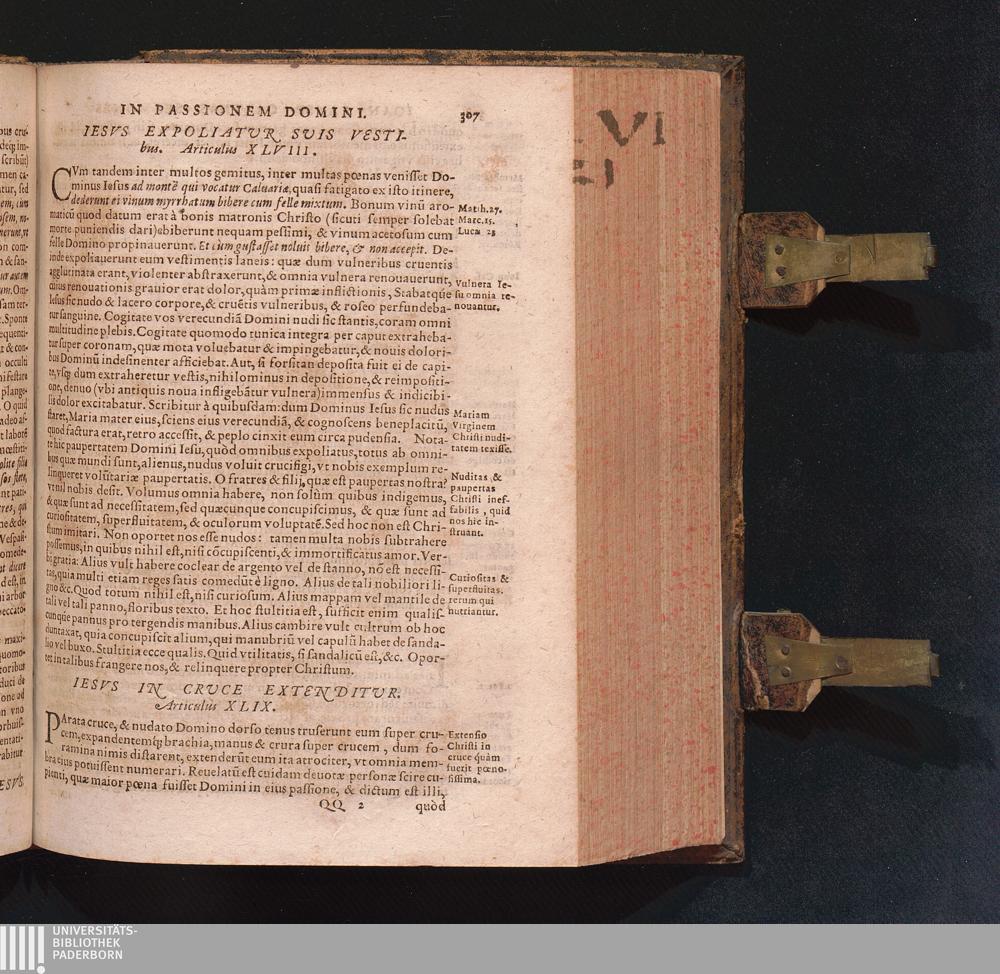 IN PASSIONEM DOMINI. 307
IESVS EXPOLIATVR SVIS VESTI-
bus. Articulus XLVIII.
CVm tandem inter multos gemitus, inter multas pœnas venisset Do-
minus Iesus ad montē qui vocatur Caluariæ, quasi fatigato ex isto itinere,
dederunt ei vinum myrrhatum bibere cum felle mixtum. Bonum vinū aro-
maticū quod datum erat à bonis matronis Christo (sicuti semper solebat
morte puniendis dari) ebiberunt nequam pessimi, & vinum acetosum cum
felle Domino propinauerunt. Et cùm gustasset noluit bibere, & non accepit. De-
inde expoliauerunt eum vestimentis laneis: quæ dum vulneribus cruentis
agglutinata erant, violenter abstraxerunt, & omnia vulnera renouauerunt,
cuius renouationis grauior erat dolor, quàm primæ inflictionis, Stabatque
Iesus sic nudo & lacero corpore, & cruētis vulneribus, & roseo perfundeba-
tur sanguine. Cogitate vos verecundiā Domini nudi sic stantis, coram omni
multitudine plebis. Cogitate quomodo tunica integra per caput extraheba-
tur super coronam, quæ mota voluebatur & impingebatur, & nouis dolori-
bus Dominū indesinenter afficiebat. Aut, si forsitan deposita fuit ei de capi-
te, vsq; dum extraheretur vestis, nihilominus in depositione, & reimpositi-
one, denuo (vbi antiquis noua infligebātur vulnera) immensus & indicibi-
lis dolor excitabatur. Scribitur à quibusdam: dum Dominus Iesus sic nudus
staret, Maria mater eius, sciens eius verecundiā, & cognoscens beneplacitū,
quod factura erat, retro accessit, & peplo cinxit eum circa pudensia. Nota-
te hic paupertatem Domini Iesu, quòd omnibus expoliatus, totus ab omni-
bus quæ mundi sunt, alienus, nudus voluit crucifigi, vt nobis exemplum re-
linqueret volūtariæ paupertatis. O fratres & filij, quæ est paupertas nostra?
vt nil nobis desit. Volumus omnia habere, non solùm quibus indigemus,
& quæ sunt ad necessitatem, sed quæcunque concupiscimus, & quæ sunt ad
curiositatem, superfluitatem, & oculorum voluptatē. Sed hoc non est Chri-
stum imitari. Non oportet nos esse nudos: tamen multa nobis subtrahere
possemus, in quibus nihil est, nisi cōcupiscenti, & immortificatus amor. Ver-
bi gratia: Alius vult habere coclear de argento vel de stanno, nō est necessi-
tas, quia multi etiam reges satis comedūt è ligno. Alius de tali nobiliori li-
gno &c. Quod totum nihil est, nisi curiosum. Alius mappam vel mantile de
tali vel tali panno, floribus texto. Et hoc stultitia est, sufficit enim qualis-
cunque pannus pro tergendis manibus. Alius cambire vult cultrum ob hoc
duntaxat, quia concupiscit alium, qui manubriū vel capulū habet de sanda-
lio vel buxo. Stultitia ecce qualis. Quid vtilitatis, si sandalicū est, &c. Opor-
tet in talibus frangere nos, & relinquere propter Christum.
Matth. 27.
Marc. 15.
Lucæ 23
Vulnera Ie-
su omnia re-
nouantur.
Mariam
Virginem
Christi nudi-
tatem texisse.
Nuditas &
paupertas
Christi inef-
fabilis, quid
nos hîc in-
struant.
Curiositas &
superfluitas.
rerum qui
nutriantur.
IESVS IN CRVCE EXTENDITVR.
Articulus XLIX.
PArata cruce, & nudato Domino dorso tenus truserunt eum super cru-
cem, expandentemq; brachia, manus & crura super crucem, dum fo-
ramina nimis distarent, extenderūt eum ita atrociter, vt omnia mem-
bra eius potuissent numerari. Reuelatū est cuidam deuotæ personæ scire cu-
pienti, quæ maior pœna fuisset Domini in eius passione, & dictum est illi,
Extensio
Christi in
cruce quàm
fuerit pœno-
sissima.
QQ 2 quòd
VI
UNIVERSITÄTS-
BIBLIOTHEK
PADERBORN